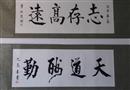 志存高遠
天道酬勤